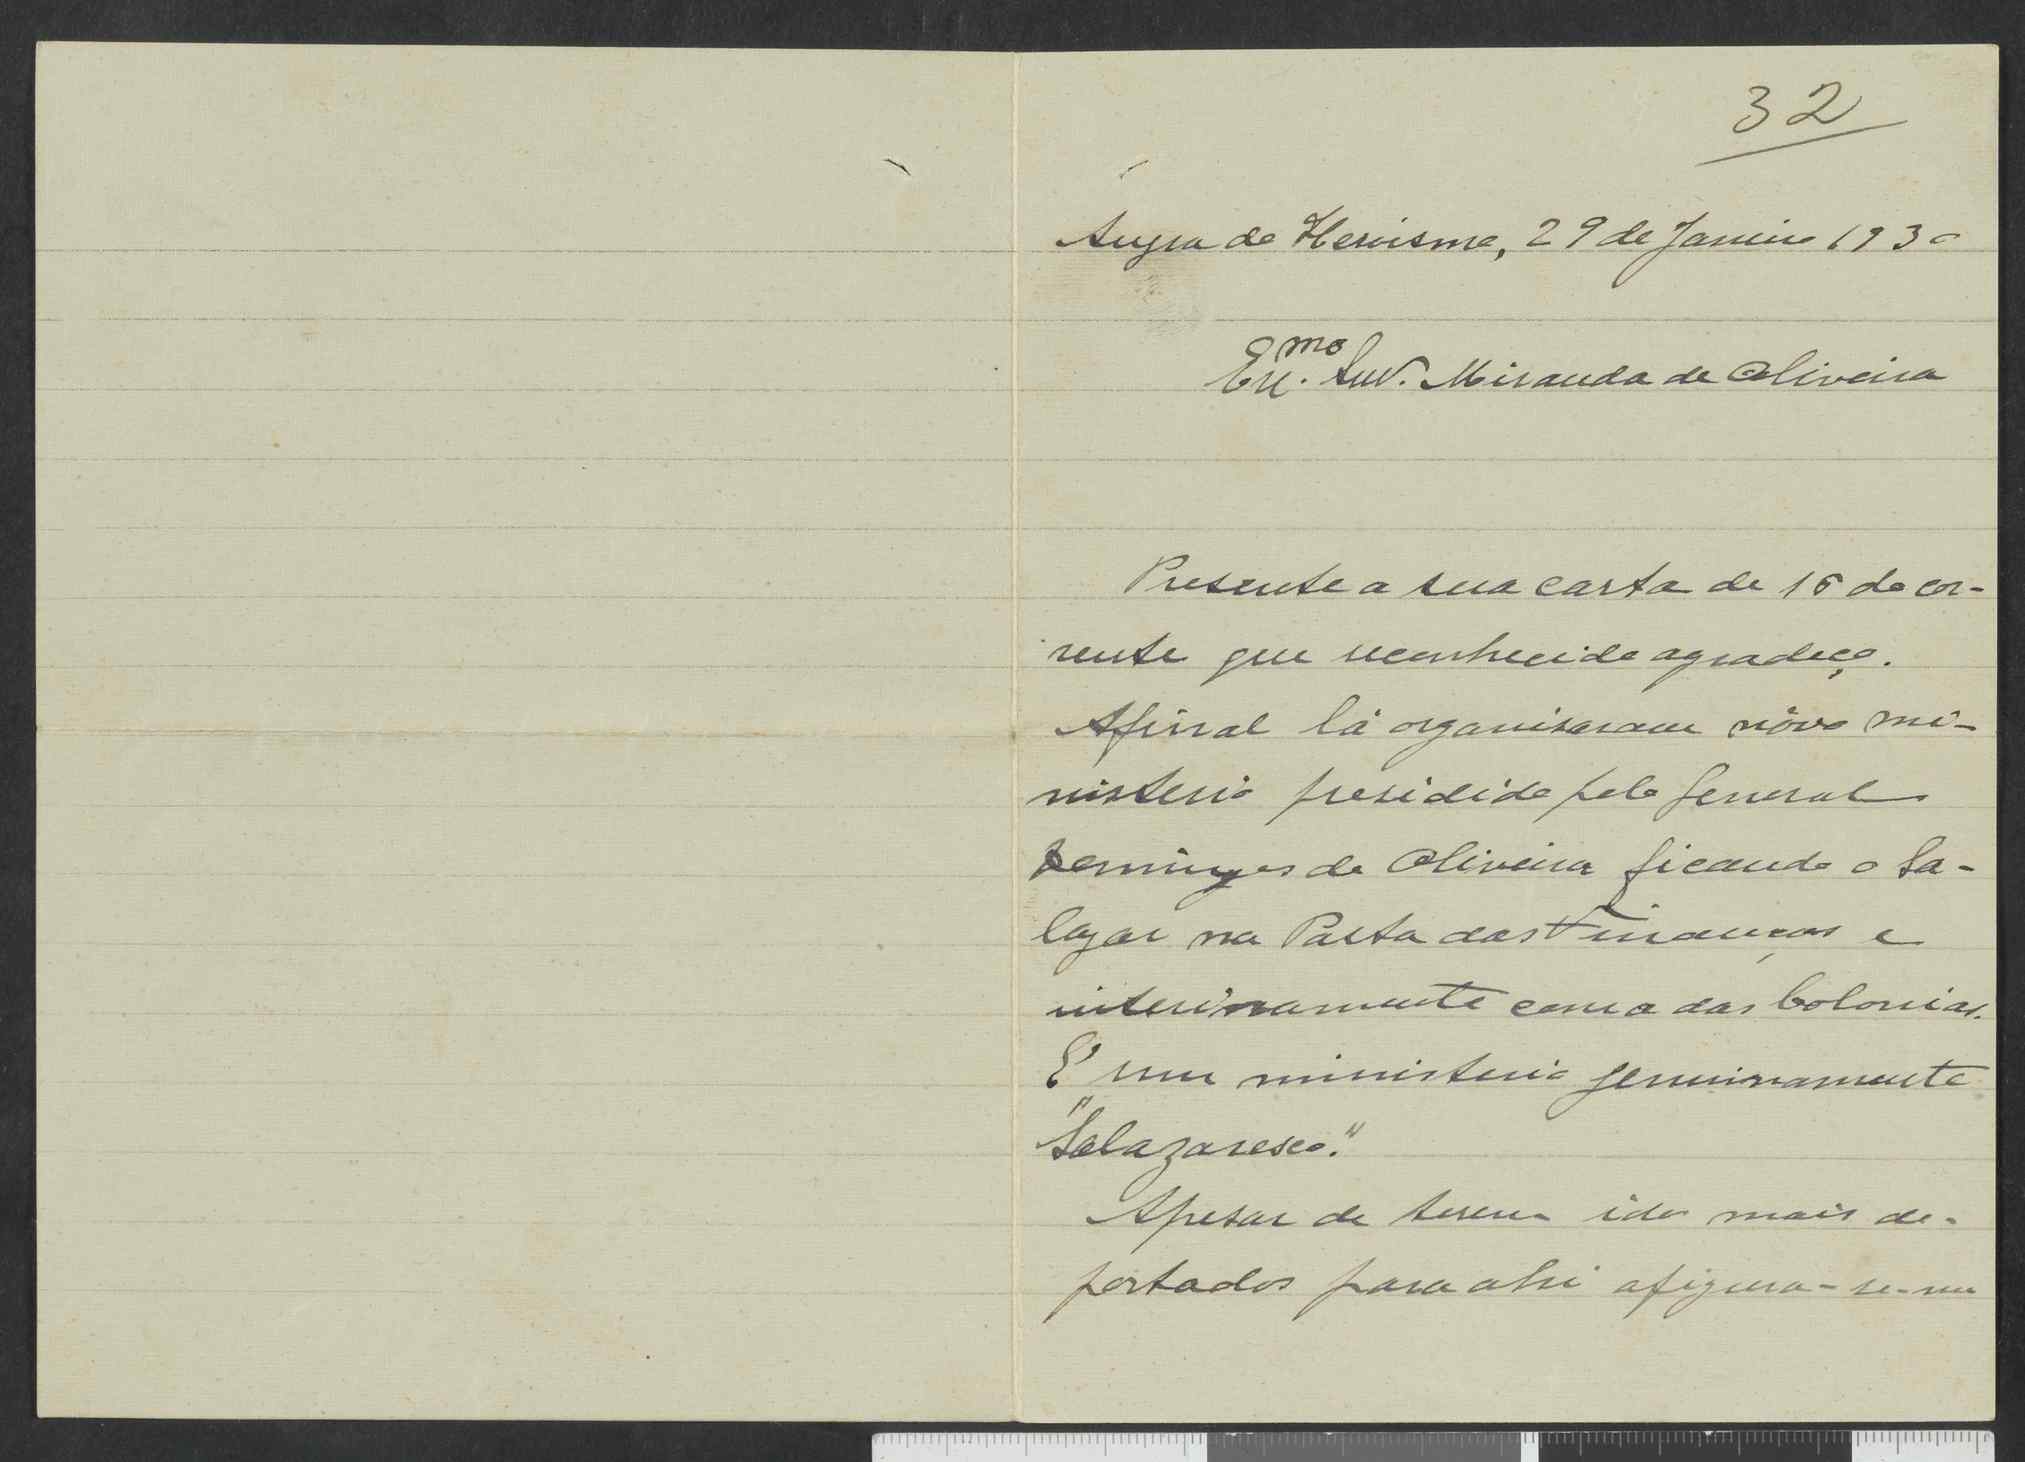 32
Angra do Heroismo, 29 de Janeiro 1930
Exmo. Snr. Miranda de Oliveira
Presente a sua carta de 15 do cor-
rente que reconhecido agradeço.
Afinal lá organisaram nôvo mi-
nisterio presidido pelo General
Domingos de Oliveira ficando o Sa-
lazar na Pasta das Finanças e
interinamente com a das Colonias.
E' um ministerio genuinamente
"Salazaresco."
Apesar de terem ido mais de-
portados para ahi afigura-se-me